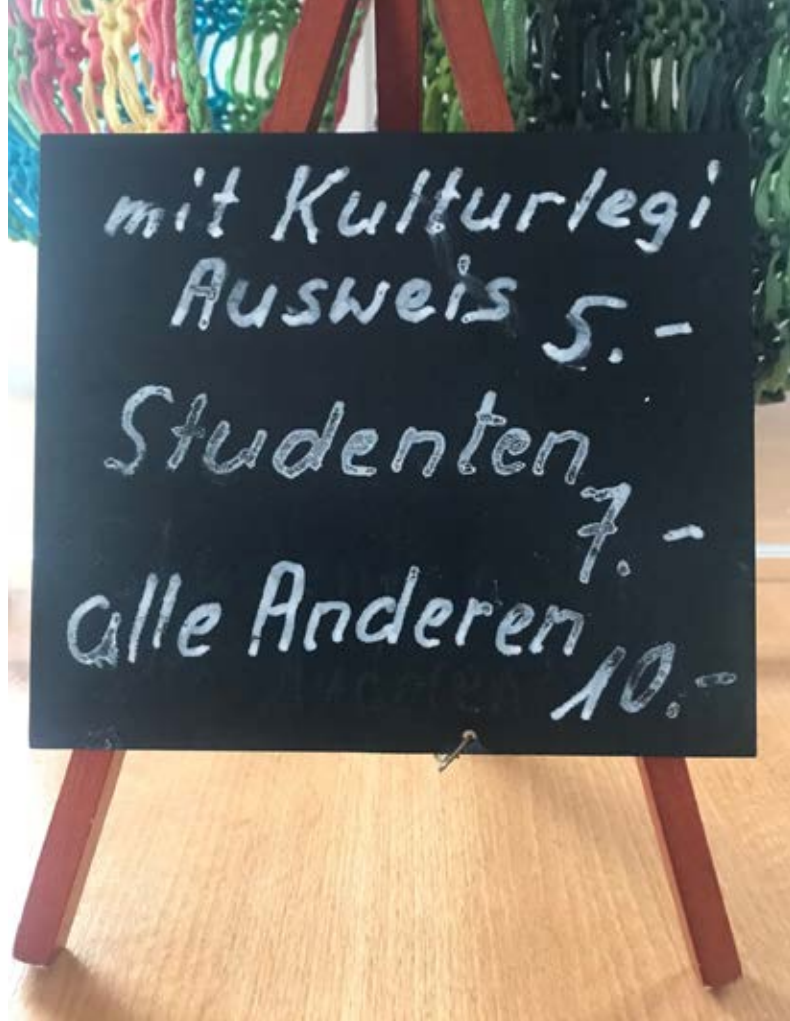 mit Kulturlegi
Ausweis 5.-
Studenten
7.-
alle Anderen
10.-